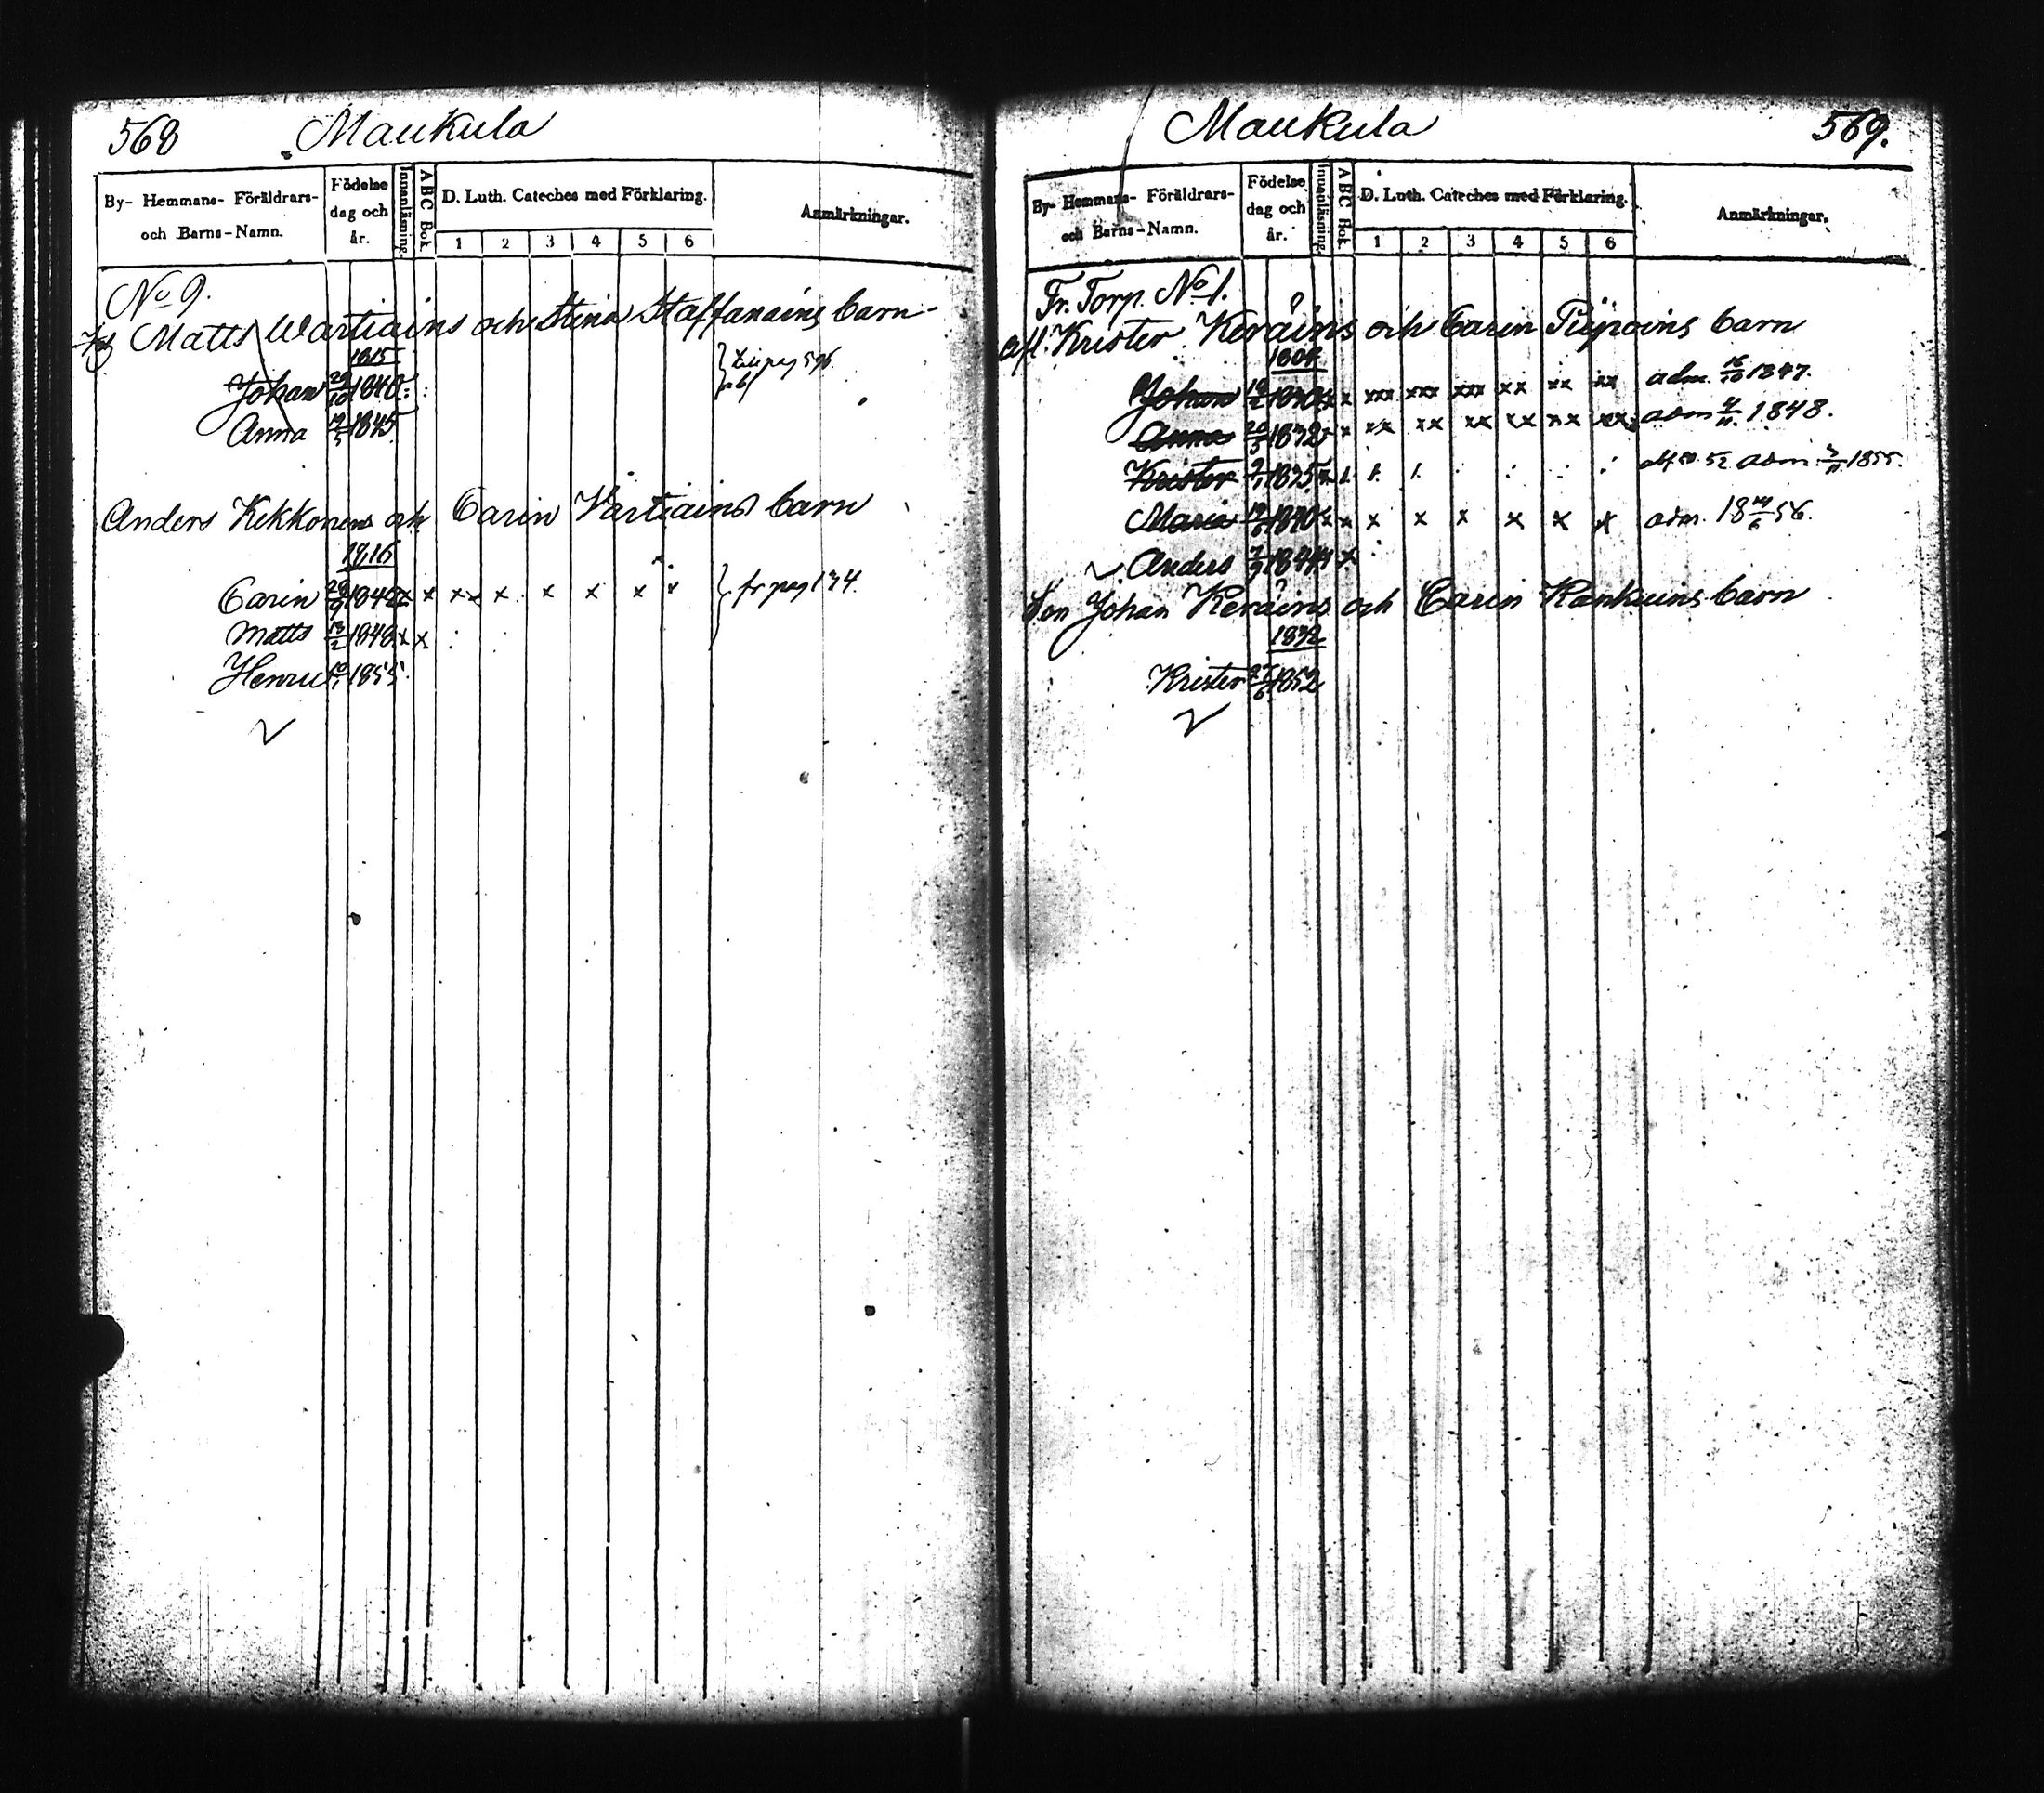 568 Maukula
By- Hemmans- Föräldrars- och Barns-Namn. Födelse dag och år. Innanläsning. ABC Bok. D. Luth. Cateches med Förklaring. Anmärkningar.
1 2 3 4 5 6
No 9.
Matts Wartiains och Stina Staffanains barn
1815
Johan 1840 till pag 596
Anna 1845
Anders Kekkonens och Carin Vartiains barn
1816
Carin 1842 x x x x x x x x x fr pag 134.
Matts 13/2 1848 x x
Henric 1855
Maukula 569.
By- Hemmans- Föräldrars- och Barns-Namn. Födelse dag och år. Innanläsning. ABC Bok. D. Luth. Cateches med Förklaring. Anmärkningar.
1 2 3 4 5 6
Fr. Torp. No 1.
afl. Krister Keräins och Carin Piipoins barn
Johan x xxx xxx xxx xx xx xx adm. 16/10 1847.
Anna 1832 x xx xx xx xx xx xx adm 4/11 1848.
Krister 1835 adm. 1855.
Maria x x x x x x x adm. 18 14/6 56.
Anders 1844 x
Son Johan Keräins och Carin Kankuins barn
1832
Krister 27/6 1852